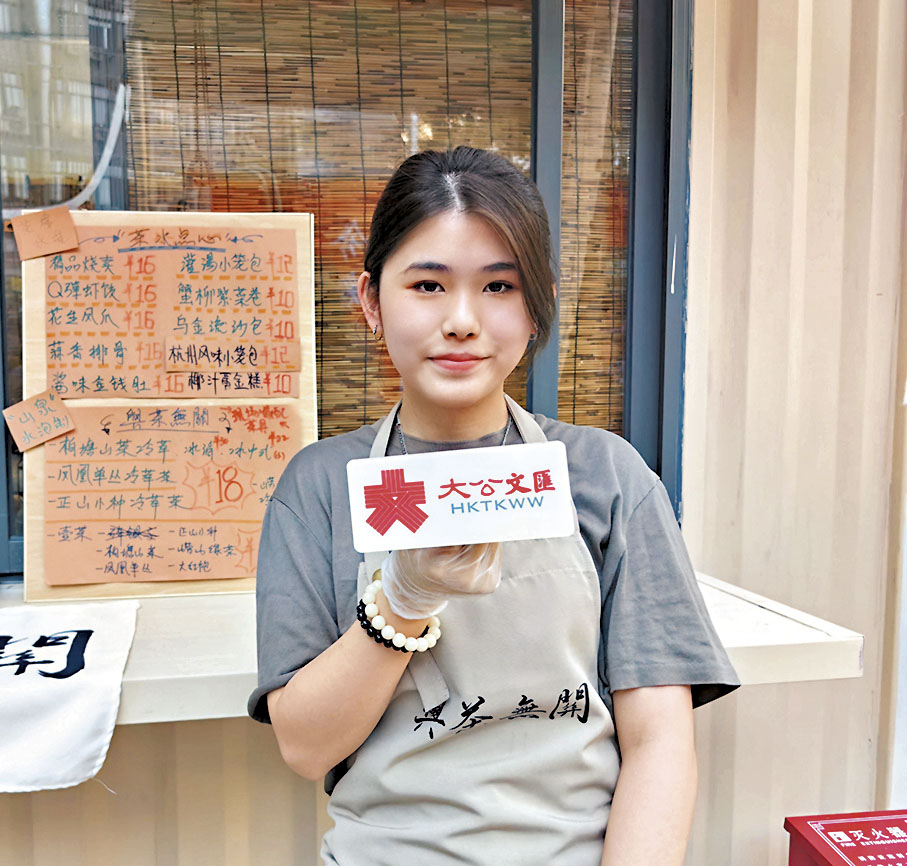 "茶水点心"
精品烧卖 ¥16
灌汤小笼包 ¥12
Q弹虾饺 ¥16
蟹柳紫菜卷 ¥10
花生凤爪 ¥16
乌金流沙包 ¥10
蒜香排骨 ¥16
杭州风味小笼包 ¥12
酱味金钱肚 ¥16
椰汁糕 ¥10
"山泉"
水泡制
與茶無關
-柏塘山茶冷萃
-凤凰单丛冷萃茶
-正山小种冷萃茶
¥18
-壹茶
-正山小种
-柏塘山茶
-崂山绿茶
-凤凰单丛
-大红袍
開
大公文匯
HKTKWW
與茶無關
灭火器箱
FIRE EXTINGUISHER